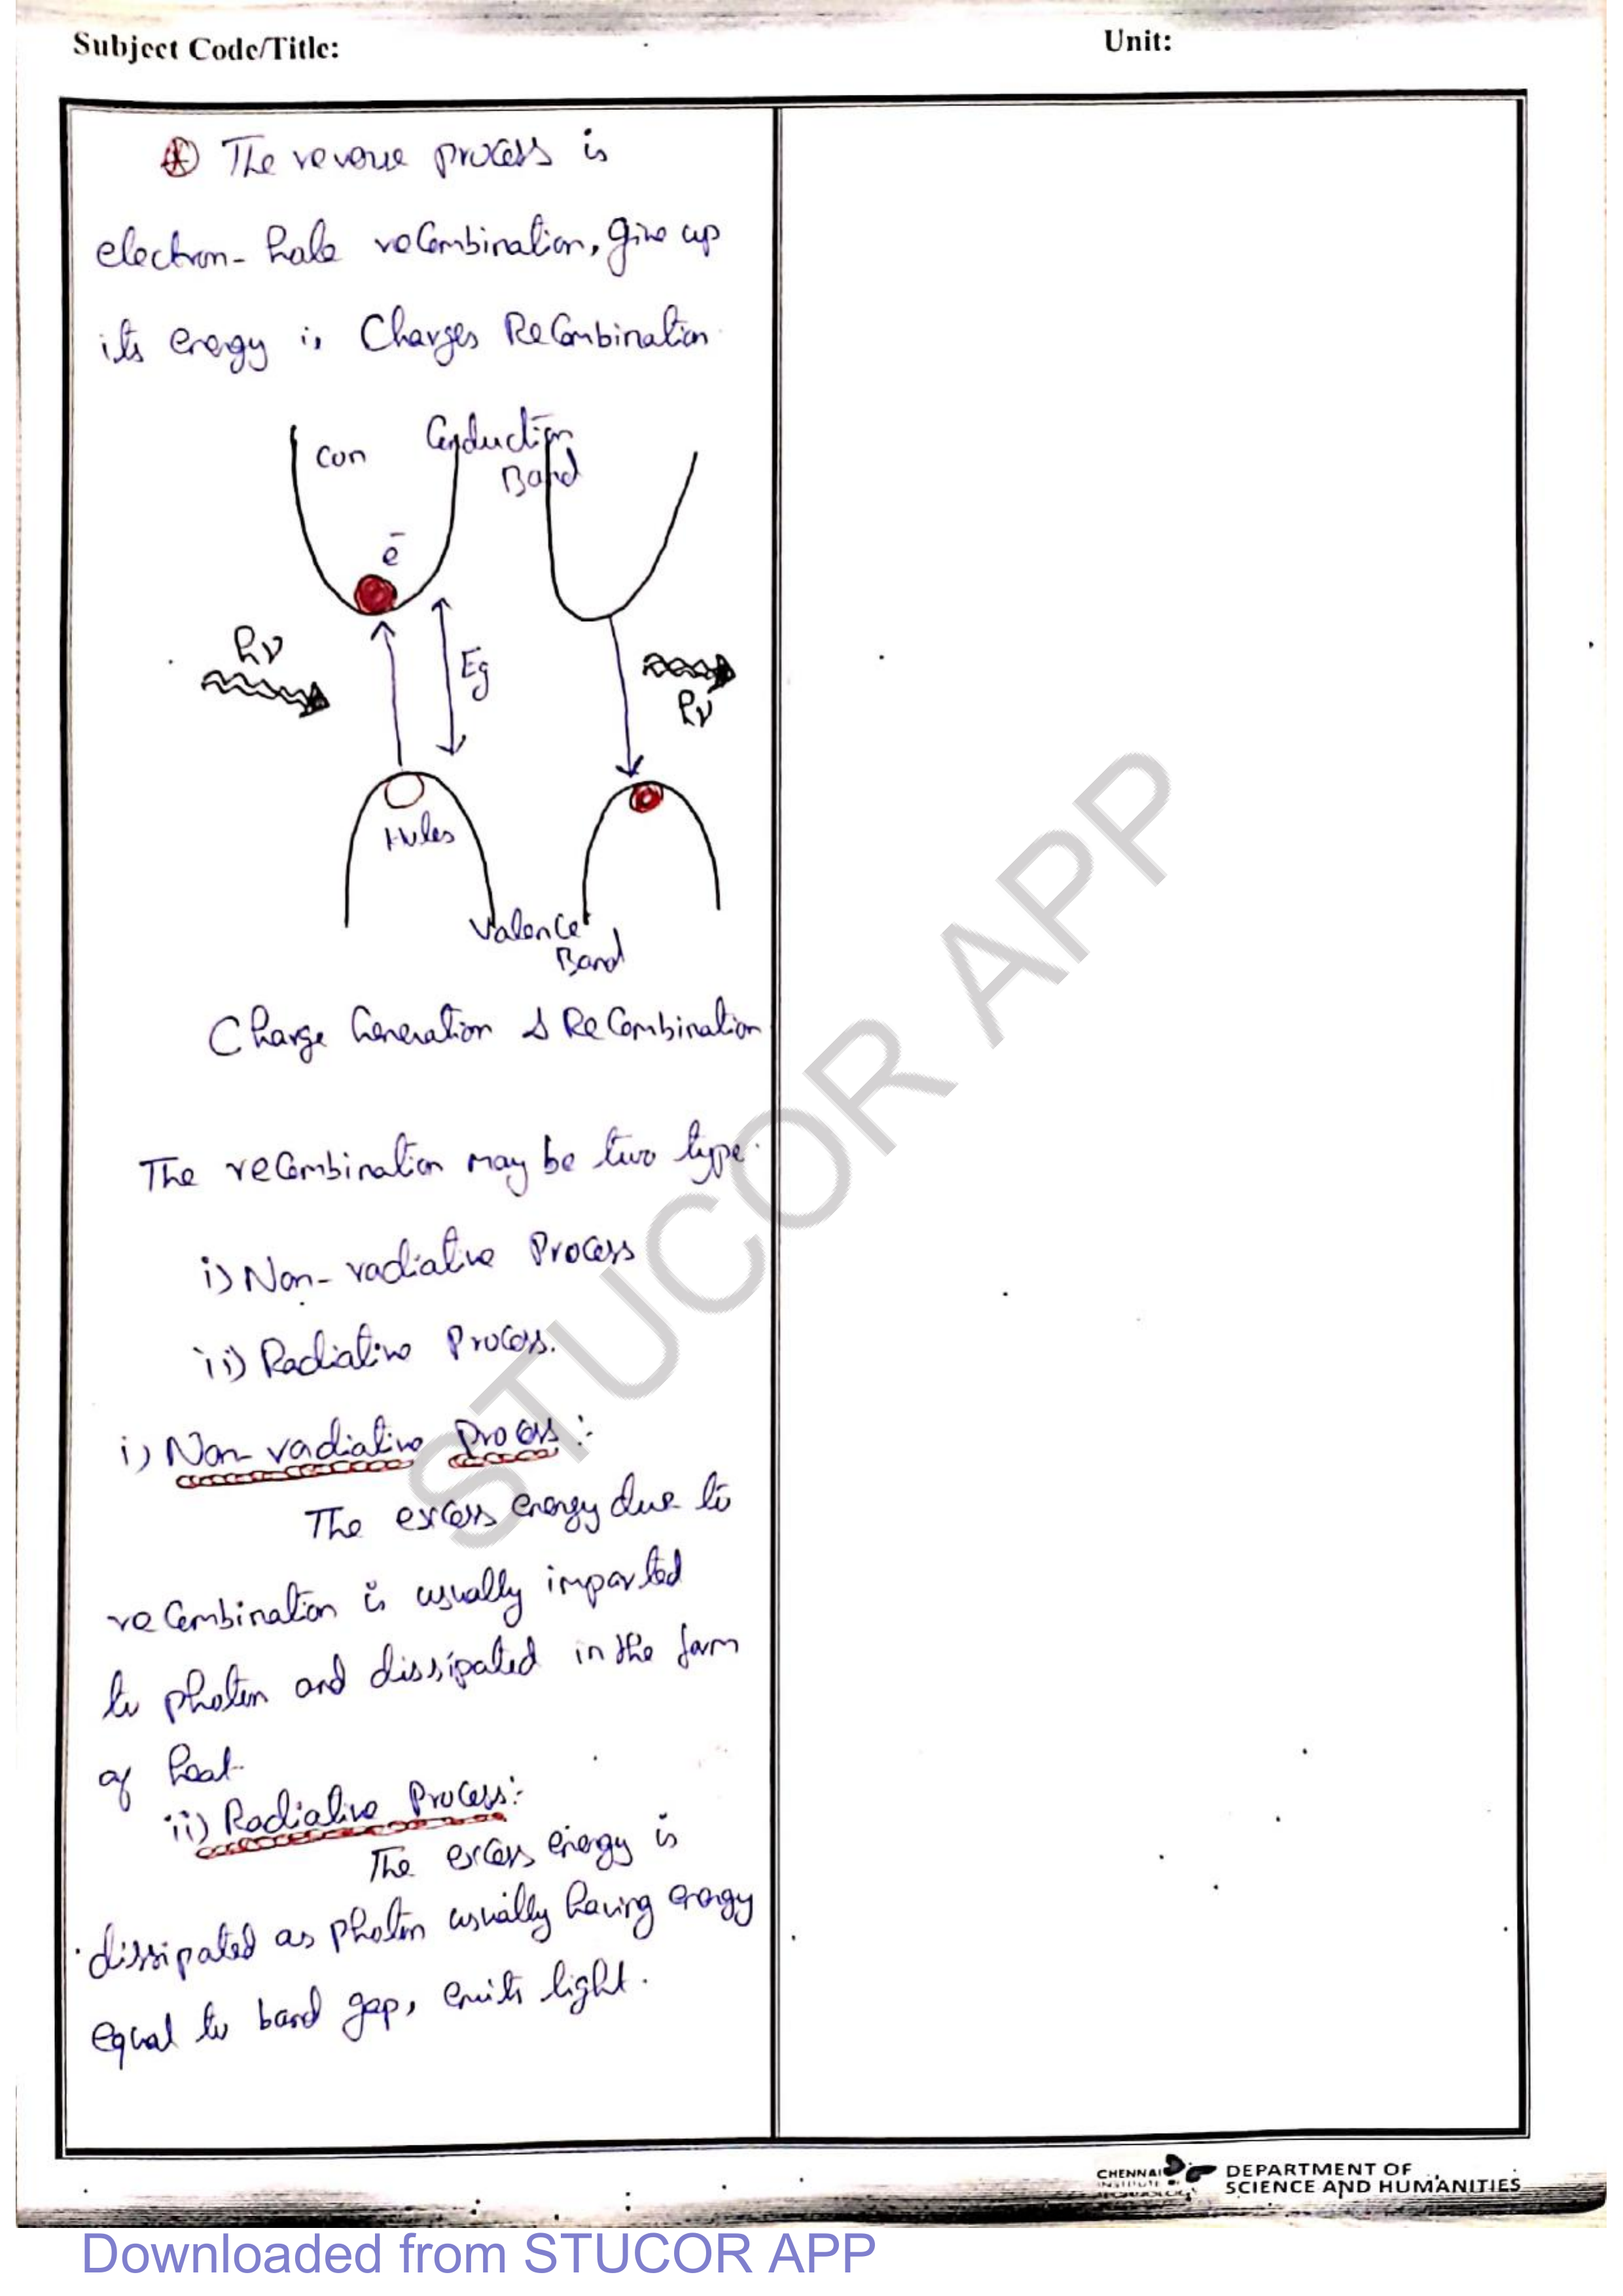 Subject Code/Title:
Unit:
The reverse process is
electron-hole recombination, give up
its energy is Charges Recombination.
Con
Conduction
Band
e-
hν
Eg
hν
Holes
Valence
Band
Charge Generation & Recombination
The recombination may be two type.
i) Non-radiative Process
ii) Radiative Process.
i) Non-radiative Process:-
The excess energy due to
recombination is usually imparted
to photon and dissipated in the form
of heat.
ii) Radiative Process:-
The excess energy is
dissipated as photon usually having energy
equal to band gap, emits light.
STUCOR APP
CHENNAI
INSTITUTE OF
TECHNOLOGY
DEPARTMENT OF
SCIENCE AND HUMANITIES
Downloaded from STUCOR APP